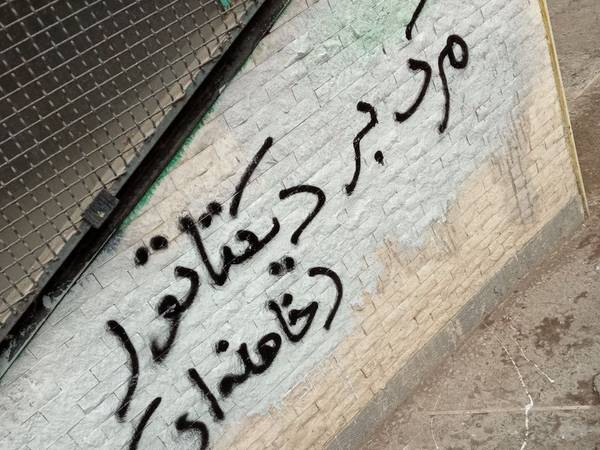 مرگ بر دیکتاتور
(خامنه‌ای)